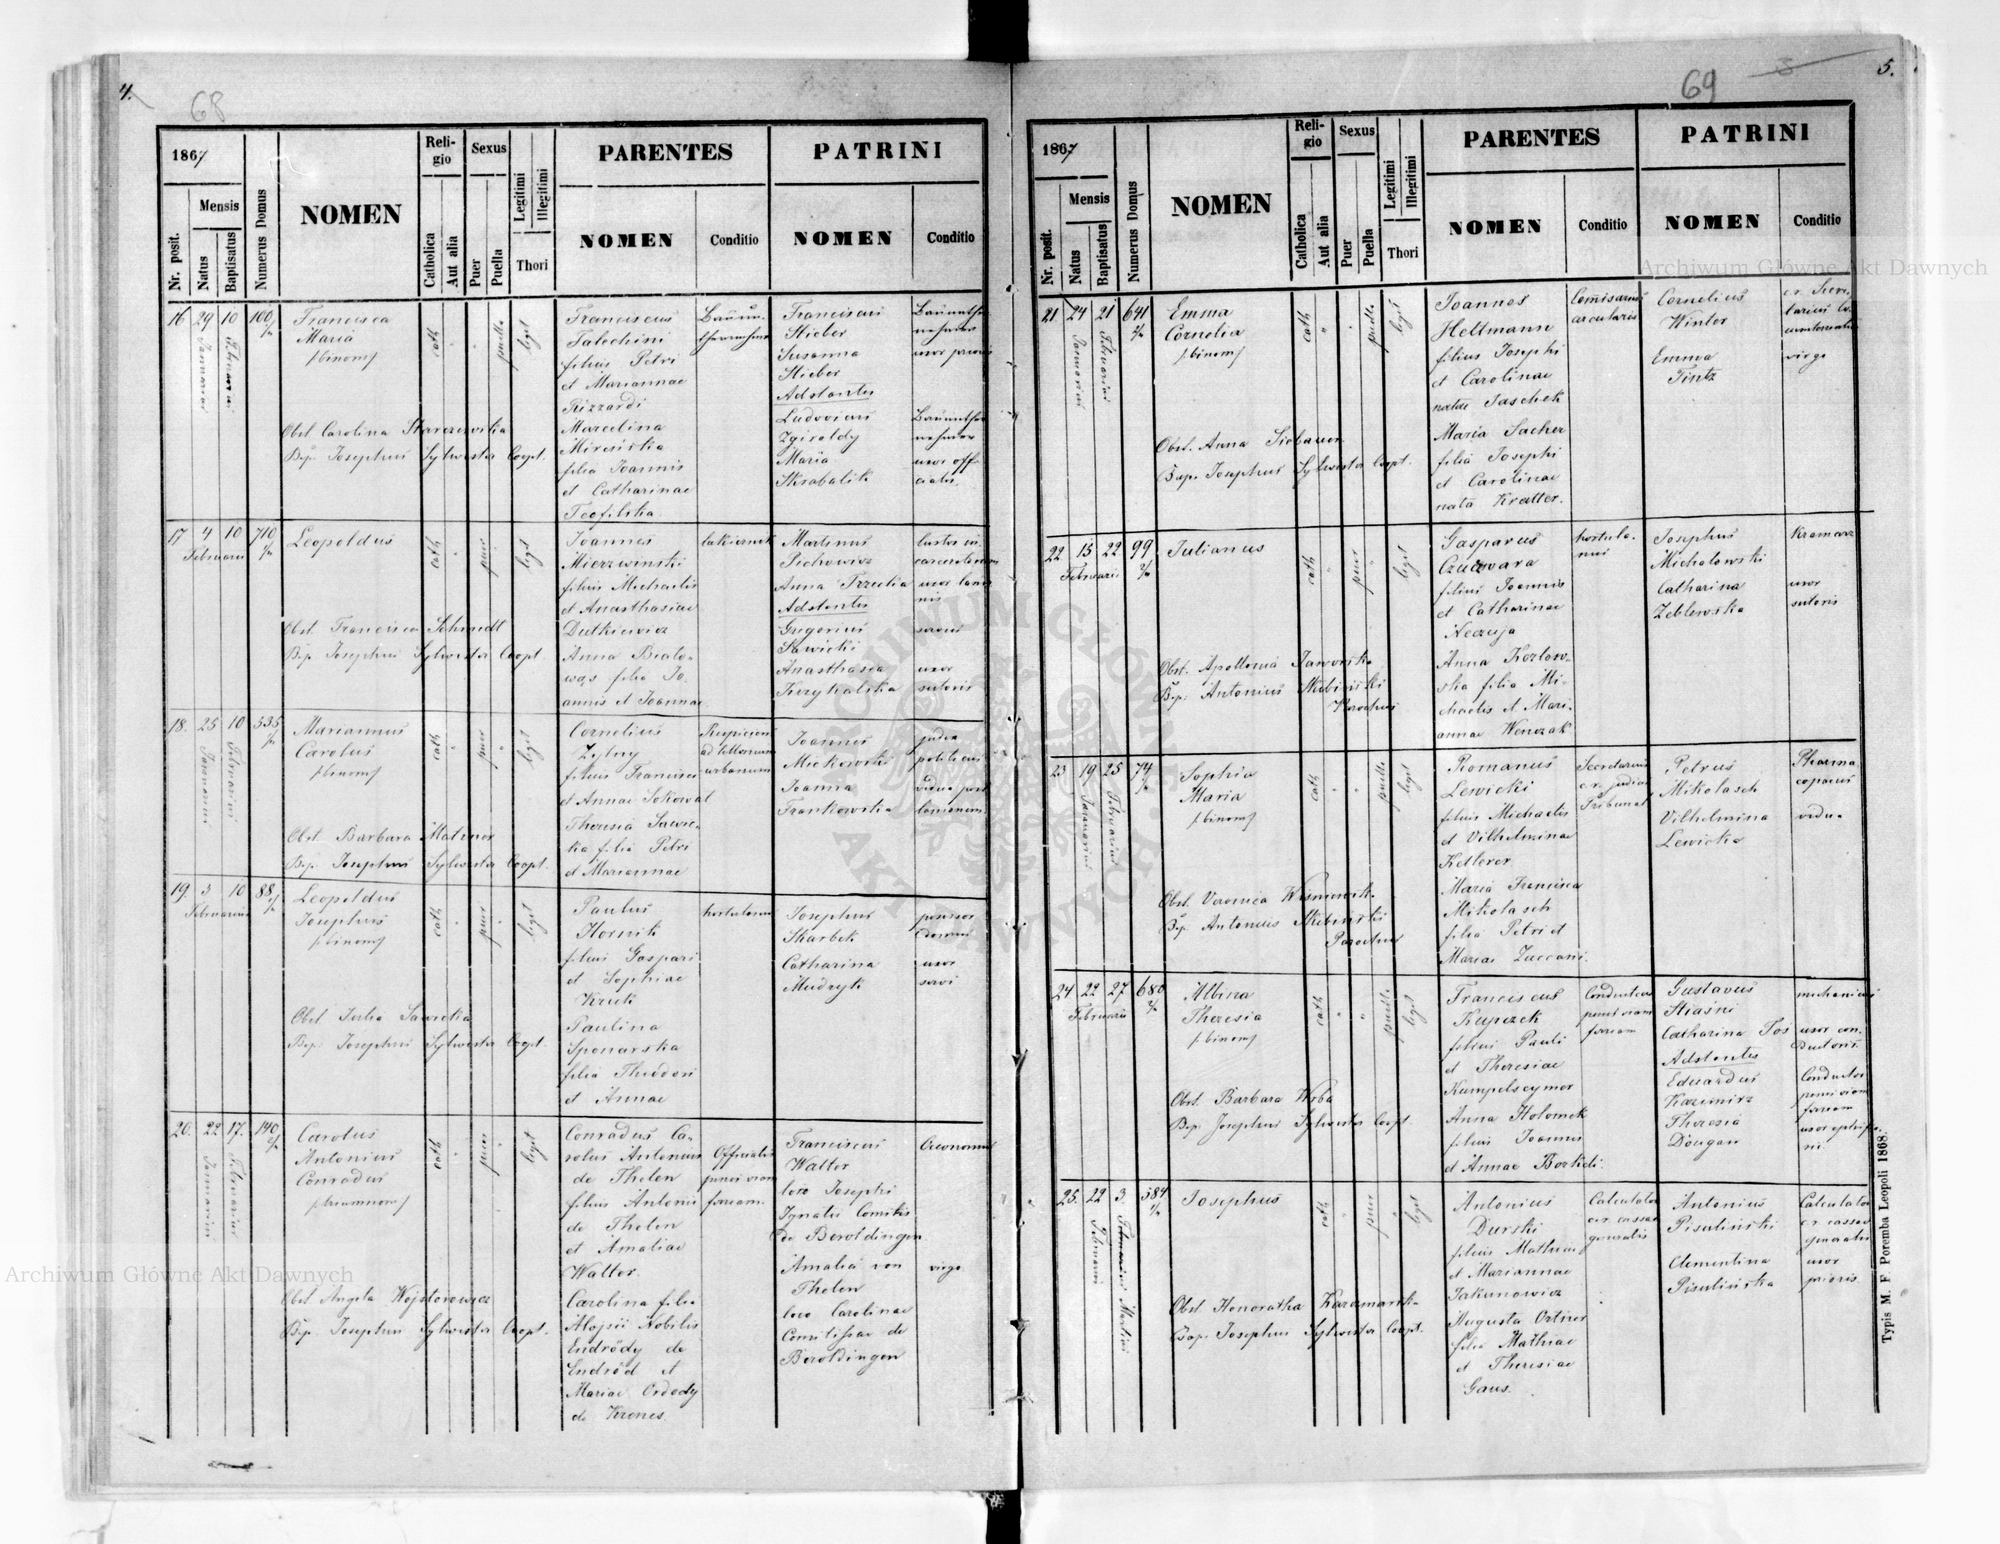 4.
68
1867
Mensis
Nr. posit.
Natus
Baptisatus
Numerus Domus
NOMEN
Reli-
gio
Catholica
Aut alia
Sexus
Puer
Puella
Legitimi
Illegitimi
Thori
PARENTES
NOMEN
Conditio
PATRINI
NOMEN
Conditio
16 29 10 100
Januarii
Februarii
Francisca
Maria
/:binom:/
cath
puella
legit
Obst Carolina
Bap. Josephus Sylwester Coopt.
Franciscus
Talechini
filius Petri
et Mariannae
Rizzardi
Marcelina
filia Joannis
et Catharinae
Teofilska
Franciscus
Hieber
Susanna
Hieber
uxor prioris
Adstantes
Ludovicus
Zgiroldy
Maria
Skrabalik
uxor offi-
cialis
17 4 10 710
Februarii
Leopoldus
cath
puer
legit
Obst. Francisca Schmidt
Bap. Josephus Sylwester Coopt.
Joannes
Mierzwinski
filius Michaelis
et Anasthasiae
Dutkiewicz
Anna Biało-
wąs filia Jo-
annis et Joannae
lakiernik
Martinus
Pichowicz
custos in
Anna Trzulia
Adstantes
Gregorius
Sawicki
Anasthasia
Krzykalska
uxor
sutoris
18. 25 10 535
Januarii
Februarii
Mariannus
Carolus
/:binom:/
cath
puer
legit
Obst. Barbara Matuner
Bap. Josephus Sylwester Coopt.
Cornelius
Zylny
filius Francisci
et Annae Sokował
Theresia Sawic-
ka filia Petri
et Mariannae
Joannes
Mickowski
Joanna
Frankowska
judex
politicus
19. 3 10 88
Februarii
Leopoldus
Josephus
/:binom:/
cath
puer
legit
Obst Julia Sawicka
Bap. Josephus Sylwester Coopt.
Paulus
Hornik
filius Gaspari
et Sophiae
Kruk
Paulina
Sponarska
filia Theodori
et Annae
hortulanus
Josephus
Skarbek
Catharina
Mudryk
uxor
servi
20. 22 17. 140
Januarii
Februarii
Carolus
Antonius
Conradus
/:trinomn:/
cath
puer
legit
Obst Angela Wojstorowicz
Bap. Josephus Sylwester Coopt.
Conradus Ca-
rolus Antonius
de Thelen
filius Antonii
de Thelen
et Amaliae
Walter.
Carolina filia
Alojsii Nobilis
Endrődy de
Endrőd et
Mariae Ordody
de Krones.
Officialis
penes viam
ferream.
Franciscus
Walter
loco Josephi
Ignatii Comitis
de Beroldingen
Amalia von
Thelen
loco Carolinae
Comitissae de
Beroldingen
Oeconomus
virgo
69
5.
1867
Mensis
Nr. posit.
Natus
Baptisatus
Numerus Domus
NOMEN
Reli-
gio
Catholica
Aut alia
Sexus
Puer
Puella
Legitimi
Illegitimi
Thori
PARENTES
NOMEN
Conditio
PATRINI
NOMEN
Conditio
21 24 21 641
Januarii
Februarii
Emma
Cornelia
/:binom:/
cath
puella
legit
Obst. Anna
Bap. Josephus Sylwester Coopt.
Joannes
Heltmann
filius Josephi
et Carolinae
natae Jaschek
Maria Sacher
filia Josephi
et Carolinae
nata Kratter.
Comisarius
circularis
Cornelius
Winter
Emma
Tintz
virgo
22 15 22 99
Februarii
Julianus
cath
puer
legit
Obst. Apollonia Jaworska
Bap. Antonius Skibiński
Parochus
Gasparus
Czuczwara
filius Joannis
et Catharinae
Neczuja
Anna Kozłow-
ska filia Mi-
chaelis et Mari-
annae Wenzak
hortula-
nus
Josephus
Michałowski
Catharina
Zeblewska
Kramarz
uxor
sutoris
23 19 25 74
Januarii
Februarii
Sophia
Maria
/:binom:/
cath
puella
legit
Obst. Veronica Wisniewsk.
Bap. Antonius Skibinski
Parochus
Romanus
Lewicki
filius Michaelis
et Vilhelminae
Ketterer
Maria Francisca
Mikolasch
filia Petri et
Mariae Zuccani.
Secretarius
c.r. judicii
Tribunal
Petrus
Mikolasch
Vilhelmina
Lewicka
Pharma
copaeus
vidua
24 22 27 680
Februarii
Albina
Theresia
/:binom:/
cath
puella
legit
Obst. Barbara Wrba
Bap. Josephus Sylwester Coopt
Franciscus
Kupczek
filius Pauli
et Theresiae
Kumpelseymer
Anna Holomek
filia Joannis
et Annae
Conductor
penes viam
ferream
Gustavus
Stiasni
Catharina Fos
Adstantes
Eduardus
Kazimirz
Theresia
Dougan
mechanicus
uxor con-
ductoris.
Conductor
penes viam
ferream
25. 22 3 584
Februarii
Martii
Josephus
cath
puer
legit
Obst Honoratha Karzmarsk.
Bap. Josephus Sylwester Coopt.
Antonius
Durski
filius Mathiae
et Mariannae
Jakunowicz
Augusta Ortner
filia Mathiae
et Theresiae
Gaus.
Calculator
c.r. cassae
generalis
Antonius
Pisulinski
Clementina
Pisulinska
Calculator
c.r. cassae
generalis
uxor
prioris.
Typis M. F. Poremba Leopoli 1868.
Archiwum Główne Akt Dawnych
Archiwum Główne Akt Dawnych
ARCHIWUM GŁÓWNE AKT DAWNYCH